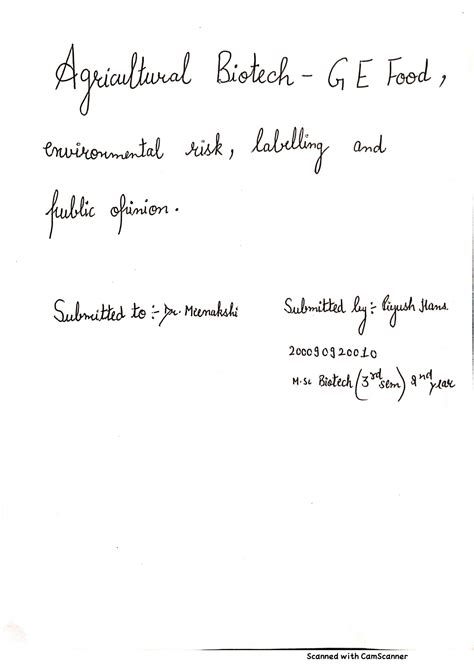 Agricultural Biotech - GE Food,
environmental risk, labelling and
public opinion.
Submitted to :- Dr. Meenakshi
Submitted by :- Piyush Hans.
200090920010
M.Sc Biotech (3rd sem) 2nd year
Scanned with CamScanner